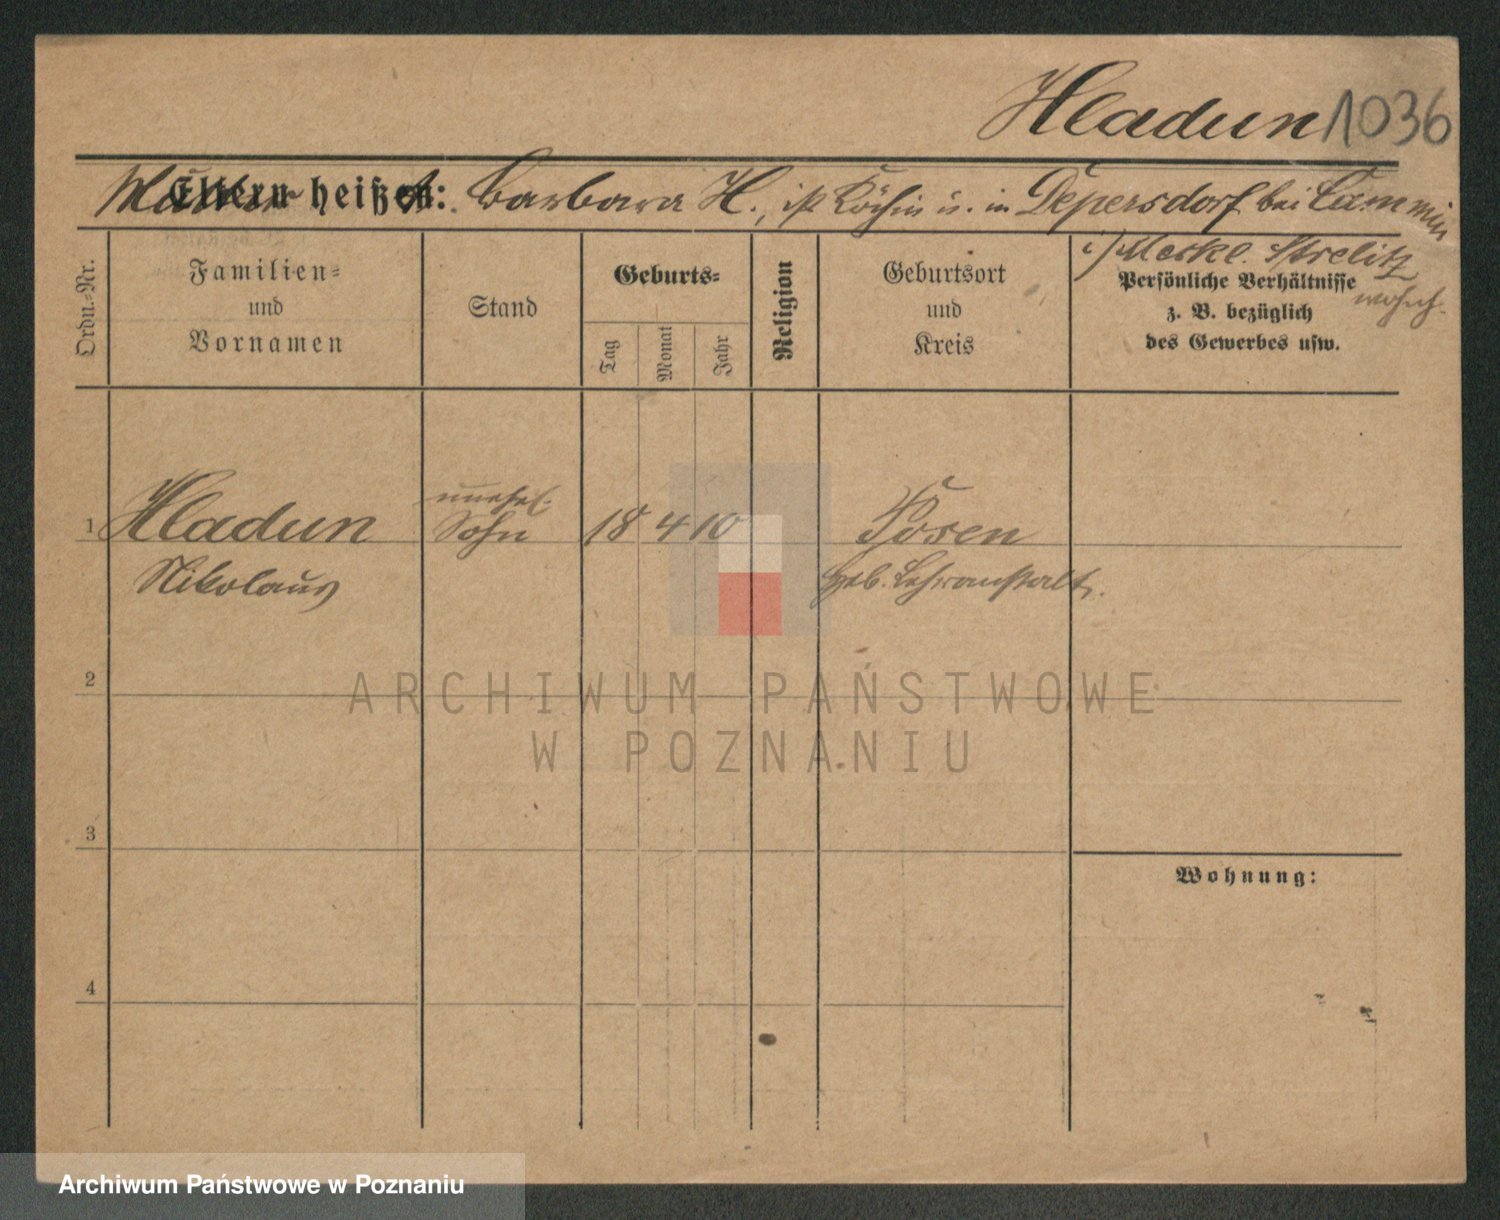 Hladun 1036
Mutter Eltern heißen: Barbara H., ist Köchin u. in Depersdorf bei Cammin
i/ Meckl. Strelitz
wohnh.
Ordn.-Nr.
Familien-
und
Vornamen
Stand
Geburts-
Tag
Monat
Jahr
Religion
Geburtsort
und
Kreis
Persönliche Verhältnisse
z. B. bezüglich
des Gewerbes usw.
unehel.
1 Hladun Sohn 18 4 10 Posen
Nikolaus Heb. Lehranstalt.
2
ARCHIWUM PAŃSTWOWE
W POZNANIU
3
Wohnung:
4
Archiwum Państwowe w Poznaniu